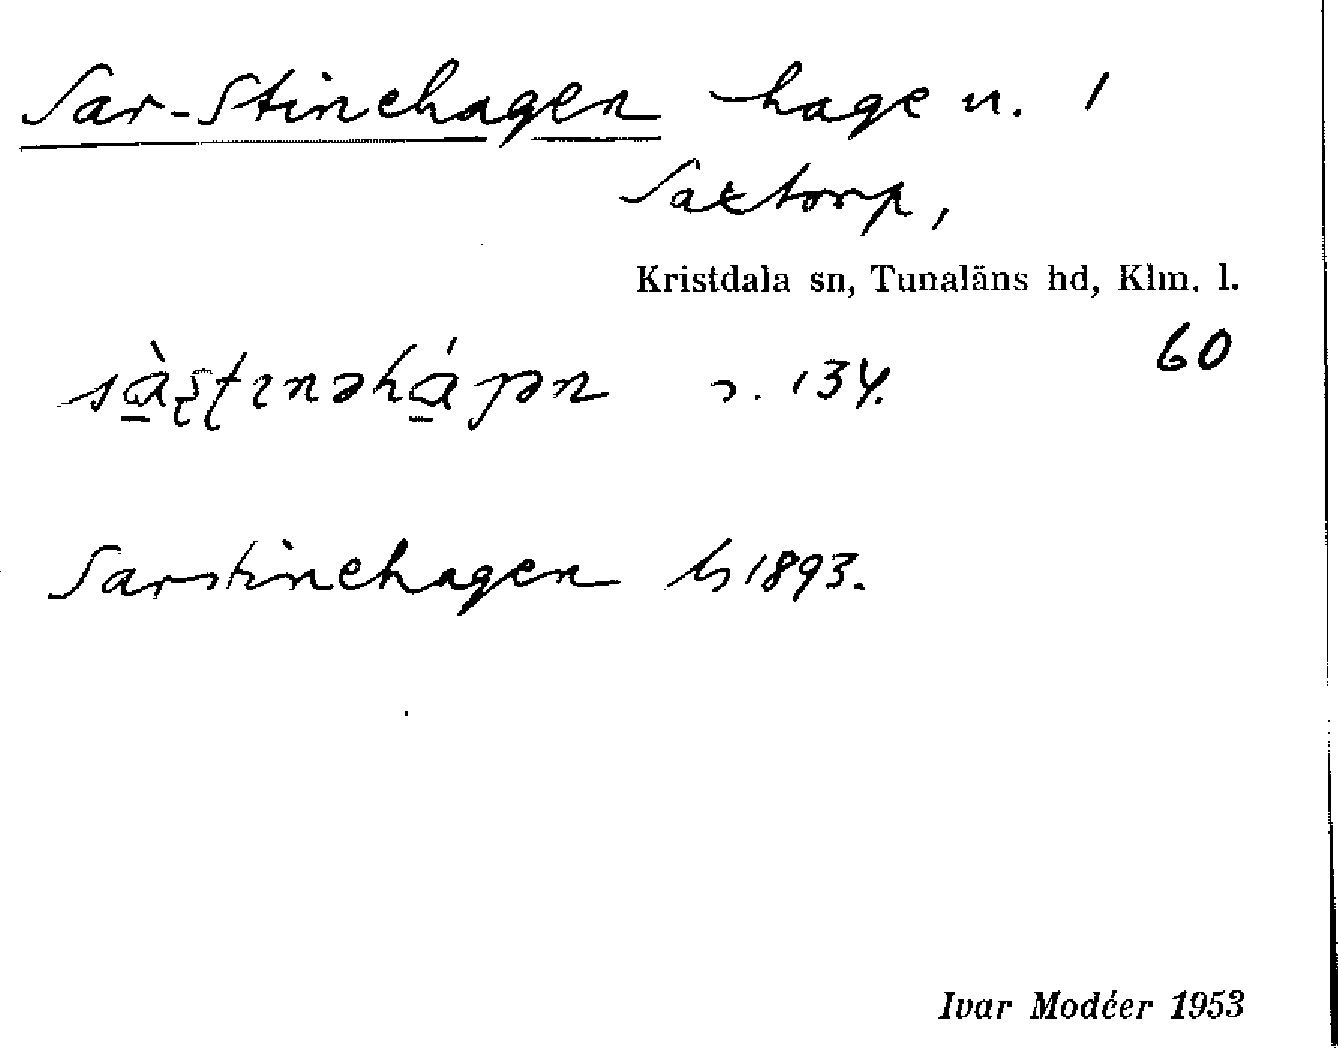 Sar-Stinehagen hage n. 1
Saxtorp,
Kristdala sn, Tunaläns hd, Klm. l.
60
134.
Sarstinehagen 1893.
Ivar Modéer 1953